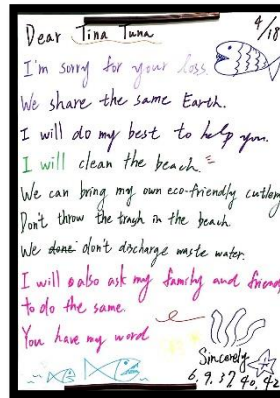 4/18
Dear Tina Tuna
I'm sorry for your loss.
We share the same Earth.
I will do my best to help you.
I will clean the beach.
We can bring my own eco-friendly cutlery
Don't throw the trash in the beach.
We done don't discharge waste water.
I will also ask my family and friends
to do the same.
You have my word
Sincerely
6. 9. 37 40. 42